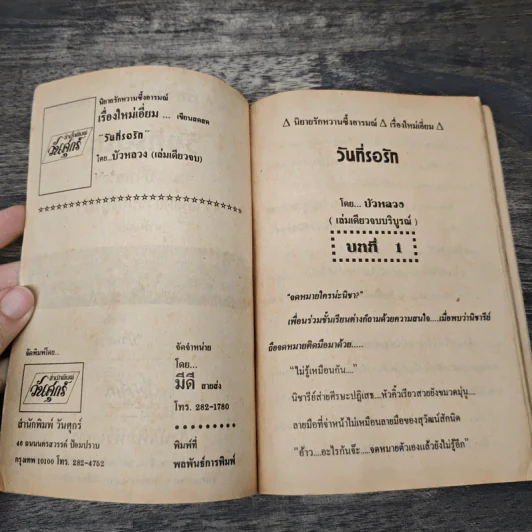 นิยายรักหวานซึ้งอารมณ์
เรื่องใหม่เอี่ยม ... เขียนสดสด
"วันที่รอรัก"
โดย...บัวหลวง (เล่มเดียวจบ)
สำนักพิมพ์
วันศุกร์
☆☆☆☆☆☆☆☆☆☆☆☆☆☆☆☆☆☆☆☆☆☆☆☆
จัดพิมพ์โดย...
สำนักพิมพ์
วันศุกร์
สำนักพิมพ์ วันศุกร์
46 ถนนนครสวรรค์ ป้อมปราบ
กรุงเทพ 10100 โทร. 282-4752
จัดจำหน่าย
โดย...
มีดี สายส่ง
โทร. 282-1780
พิมพ์ที่
พลพันธ์การพิมพ์
Δ นิยายรักหวานซึ้งอารมณ์ Δ เรื่องใหม่เอี่ยม Δ
วันที่รอรัก
โดย... บัวหลวง
( เล่มเดียวจบบริบูรณ์ )
บทที่ 1
"จดหมายใครน่ะนิชา?"
เพื่อนร่วมชั้นเรียนต่างก็ถามด้วยความสนใจ....เมื่อพบว่านิชารีย์
ถือจดหมายติดมือมาด้วย.....
"ไม่รู้เหมือนกัน...."
นิชารีย์ส่ายศีรษะปฏิเสธ...หัวคิ้วเรียวสวยยังขมวดมุ่น...
ลายมือที่จ่าหน้าไม่เหมือนลายมือของสุวัฒน์สักนิด
"อ้าว....อะไรกันจ๊ะ.....จดหมายตัวเองแล้วยังไม่รู้อีก"